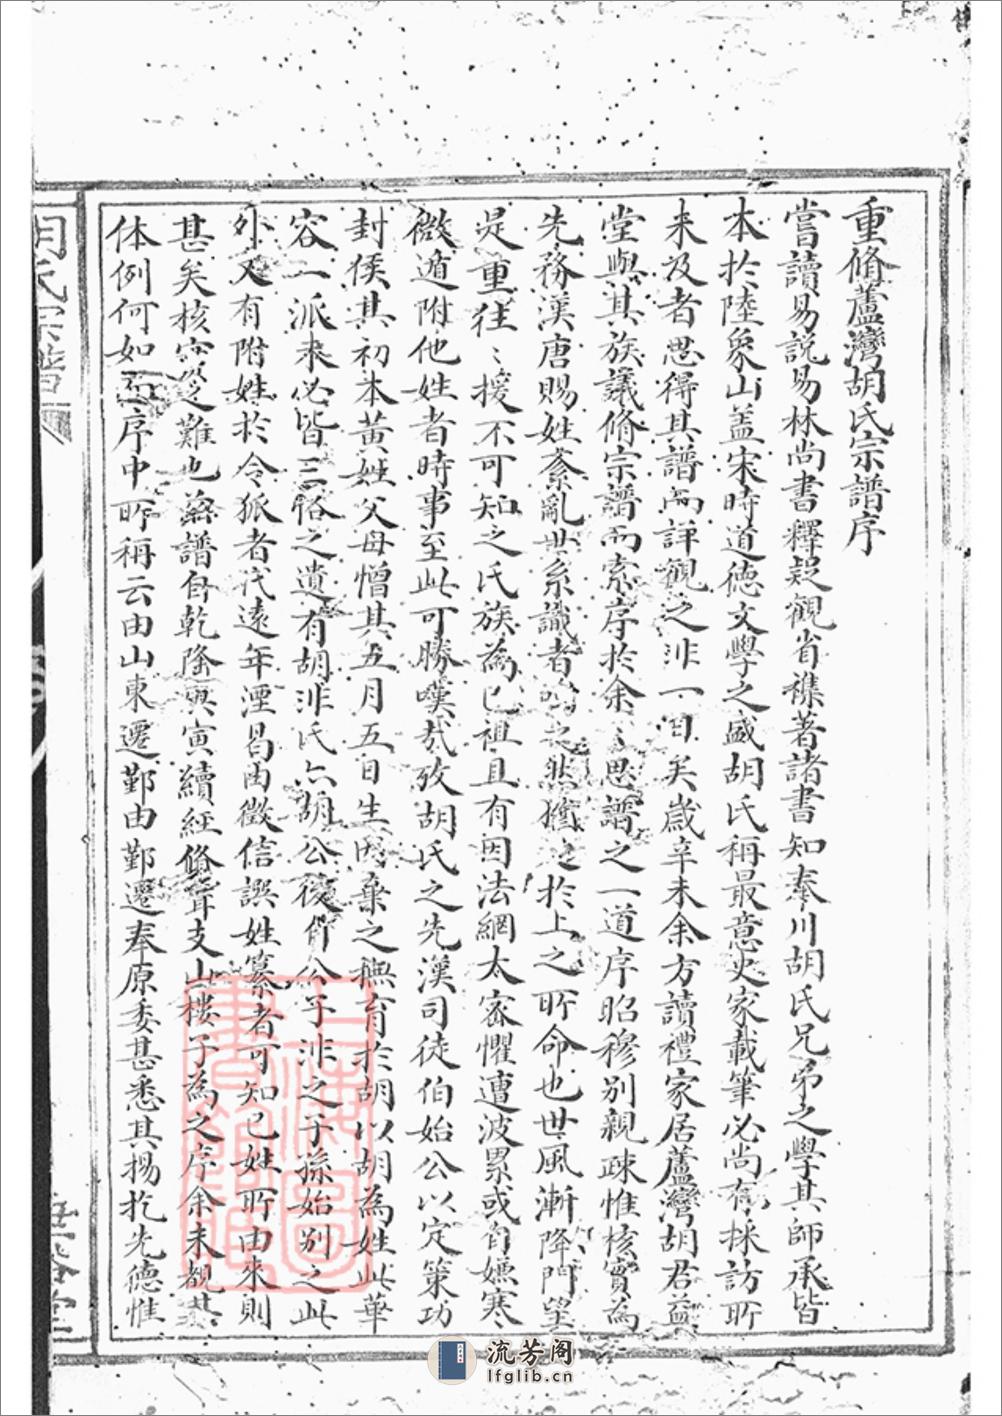 重脩蘆灣胡氏宗譜序
嘗讀易說易林尚書釋疑觀省襍著諸書知奉川胡氏兄弟之學其師承皆
本於陸象山盖宋時道德文學之盛胡氏稱最意史家載筆必尚有採訪所
未及者思得其譜而詳觀之非一日矣歲辛未余方讀禮家居蘆灣胡君益
堂與其族議脩宗譜而索序於余〻思譜之一道序昭穆别親疎惟核實為
先務漢唐賜姓紊亂世系識者之然於上之所命也世風漸降門望
是重往〻援不可知之氏族為已祖且有因法網太密懼遭波累或自嫌寒
微遁附他姓者時事至此可勝嘆哉攷胡氏之先漢司徒伯始公以定策功
封侯其初本黄姓父母憎其五月五日生因棄之撫育於胡以胡為姓此華
容一派未必皆三恪之遺有胡非氏亦胡公後有公子非之子孫始别之此
外又有附姓於令狐者代遠年湮曷由徵信譔姓纂者可知已姓所由來則
甚矣核實之難也茲譜自乾隆庚寅續經脩葺支山樓子為之序余未覩其
体例何如而序中所稱云由山東遷鄞由鄞遷奉原委甚悉其揚扢先德惟
胡氏宗譜
堂
上海圖書館藏
流芳阁
lfglib.cn